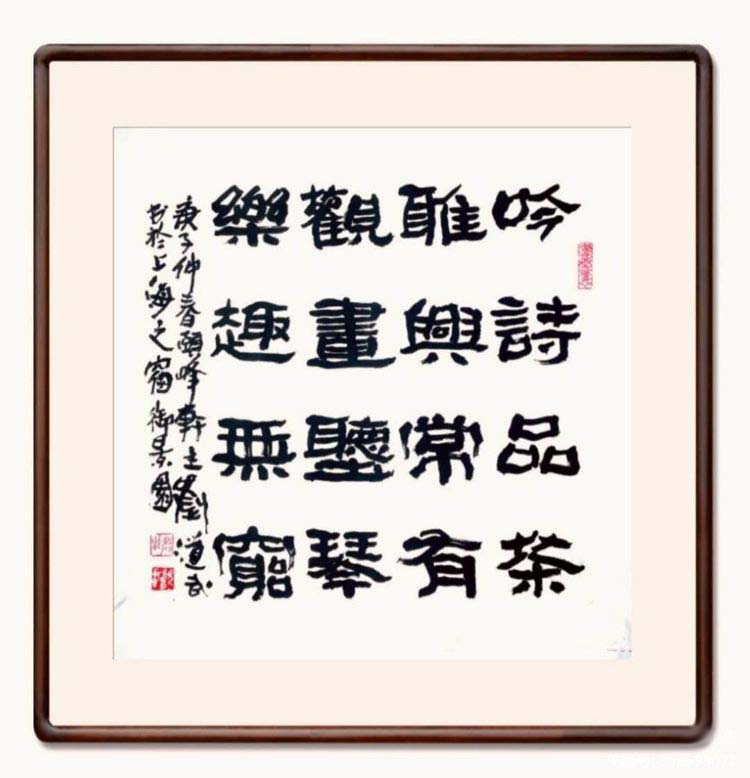 吟詩品茶
雅興常有
觀畫聽琴
樂趣無窮
庚子仲春頤峰軒主劉道武
书於上海之寓御景園